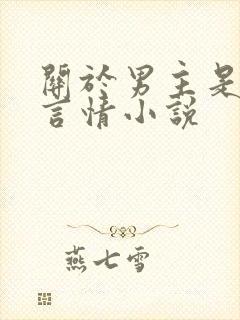 關於男主是
言情小說
燕七雪